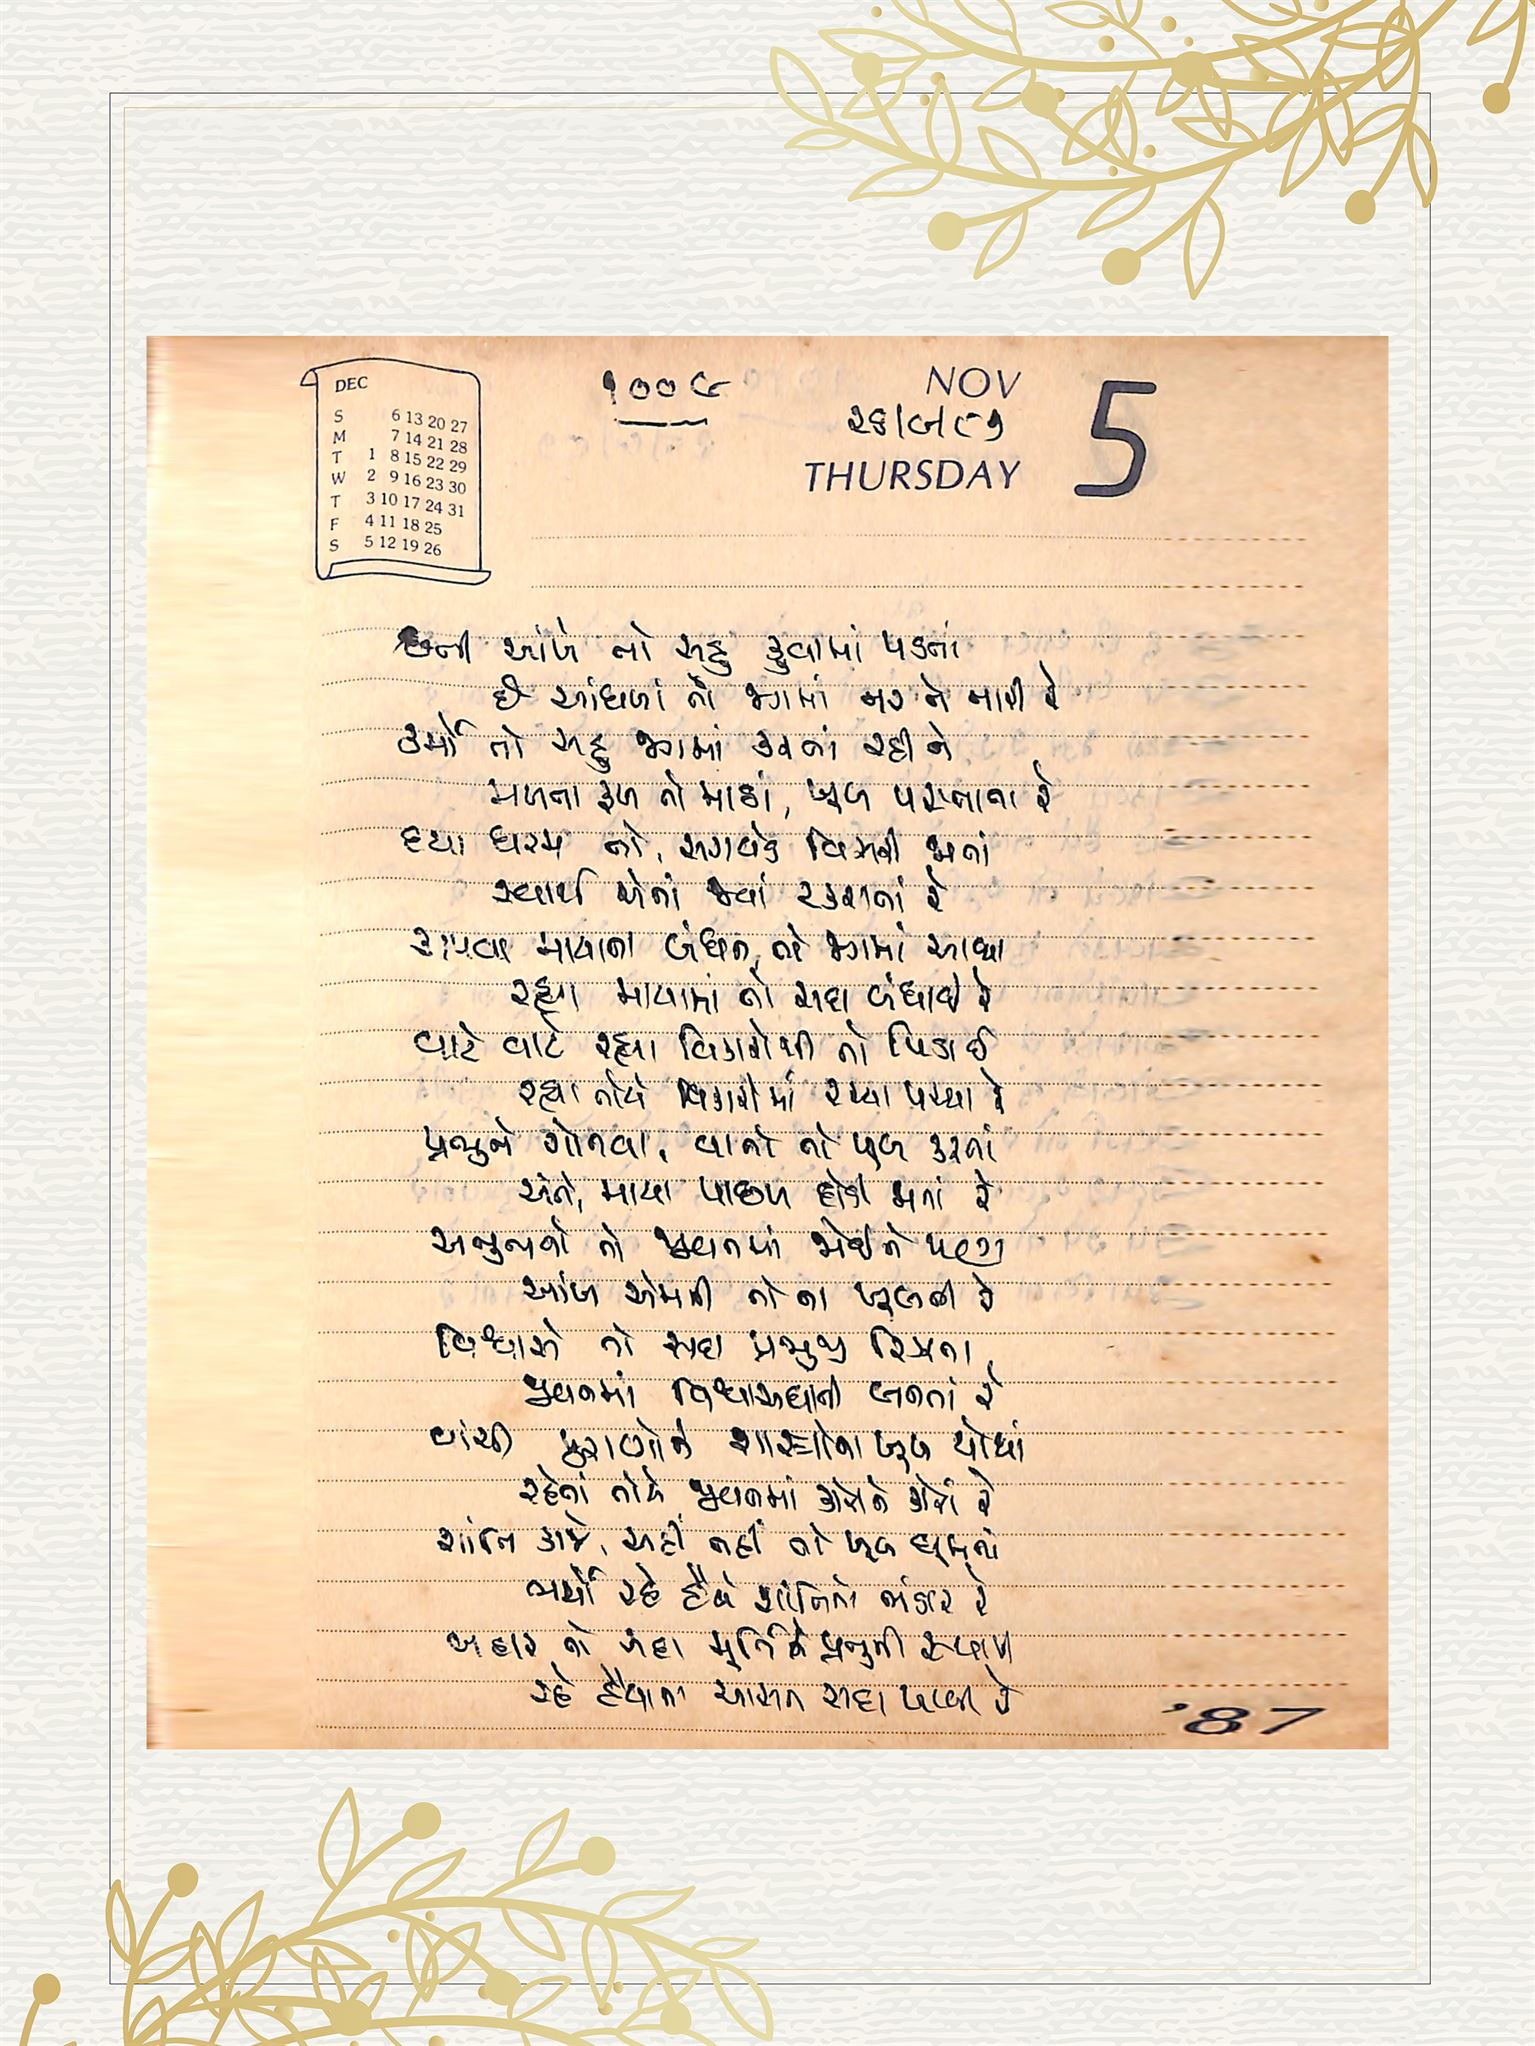 DEC
S 6 13 20 27
M 7 14 21 28
T 1 8 15 22 29
W 2 9 16 23 30
T 3 10 17 24 31
F 4 11 18 25
S 5 12 19 26
૧૦૦૯
NOV
૨૬/૯/૮૭
THURSDAY
5
છતી આંખે તો સહુ કુવામાં પડતાં
છે આંધળાં તો જગમાં નર ને નારી રે
કર્મો તો સહુ જગમાં કરતાં રહીને
મળતા ફળ તો માઠાં, ખૂબ પસ્તાતા રે
દયા ધરમ તો, સગવડે વિસરી જતાં
સ્વાર્થ એનાં જ્યાં ટકરાતાં રે
કાપવા માયાના બંધન, તો જગમાં આવ્યા
રહ્યા માયામાં તો સદા બંધાઈ રે
વાટે વાટે રહ્યા વિકારોથી તો પિડાઈ
રહ્યા તોયે વિકારોમાં રચ્યા પચ્યા રે
પ્રભુને ગોતવા, વાતો તો ખૂબ કરતાં
અંતે, માયા પાછળ દોડી જતાં રે
અનુભવો તો જીવનમાં જોઈને પણ
આંખ એમની તો ના ખૂલતી રે
વિશ્વાસે તો સદા પ્રભુજી રિઝતા
જીવનમાં વિશ્વાસઘાતી બનતાં રે
વાંચી પુરાણોને શાસ્ત્રોના ખૂબ પોથાં
રહેતાં તોયે જીવનમાં કોરાને કોરાં રે
શાંતિ કાજે, અહીં તહીં તો ખૂબ ઘૂમતાં
ભર્યો રહે હૈયે શાંતિનો ભંડાર રે
બહાર તો સદા મૂર્તિ પ્રભુની સ્થાપી
રહે હૈયાના આસન સદા ખાલી રે
'87